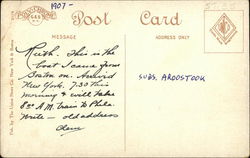 1907-
Post Card
MESSAGE
ADDRESS ONLY
Keith. This is the
boat I came from
Boston on. Arrived
New York. 7:30 This
morning & will take
8 A.M. train to Phila.
Write - old address
SUBJ. AROOSTOOK
Pub. by The Union News Co. New York &